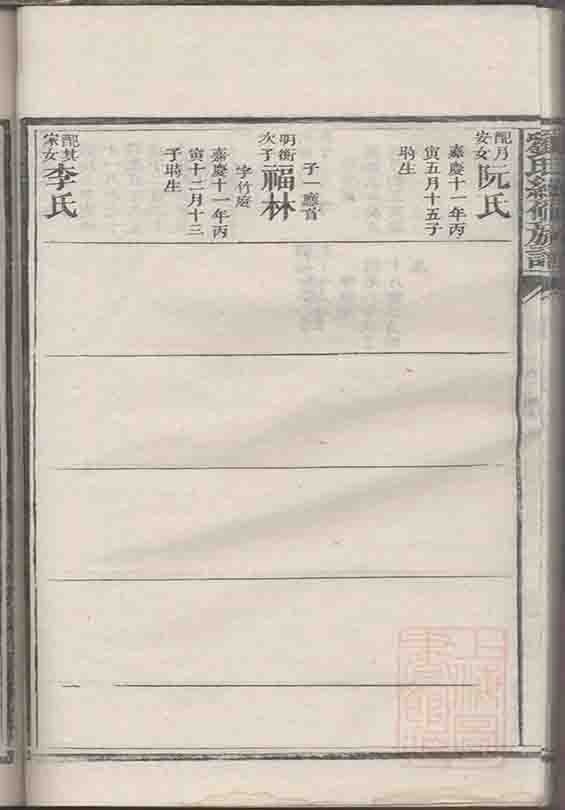 劉氏續修族譜
配月
安女
阮氏
嘉慶十一年丙
寅五月十五子
時生
子一應首
明衡
次子
福林
字竹庭
嘉慶十一年丙
寅十二月十三
子時生
配其
家女
李氏